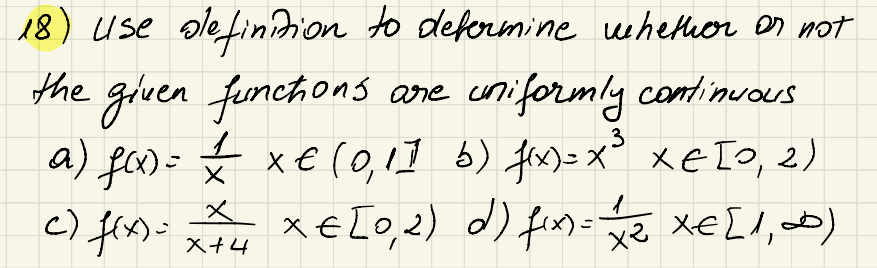 18) Use definition to determine whether or not
the given functions are uniformly continuous
a) f(x) = 1/x x ∈ (0,1] b) f(x) = x³ x ∈ [0, 2)
c) f(x) = x/(x+4) x ∈ [0,2) d) f(x) = 1/x² x ∈ [1, ∞)